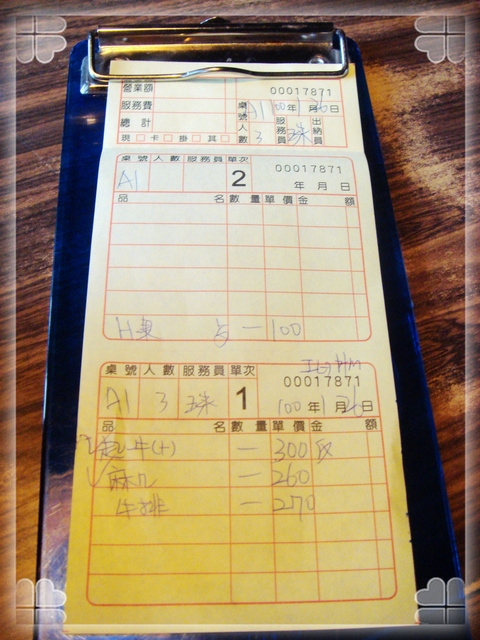 營業額 00017871
服務費 桌號 A1 100年1月26日
總計 人數 3 服務員 珠 出納員
現□卡□掛□其□
桌號 人數 服務員 單次 00017871
A1 2 年 月 日
品名 數量 單價 金額
一 100
桌號 人數 服務員 單次 00017871
A1 3 珠 1 100年1月26日
品名 數量 單價 金額
牛(+) 一 300
麻 一 260
牛排 一 270